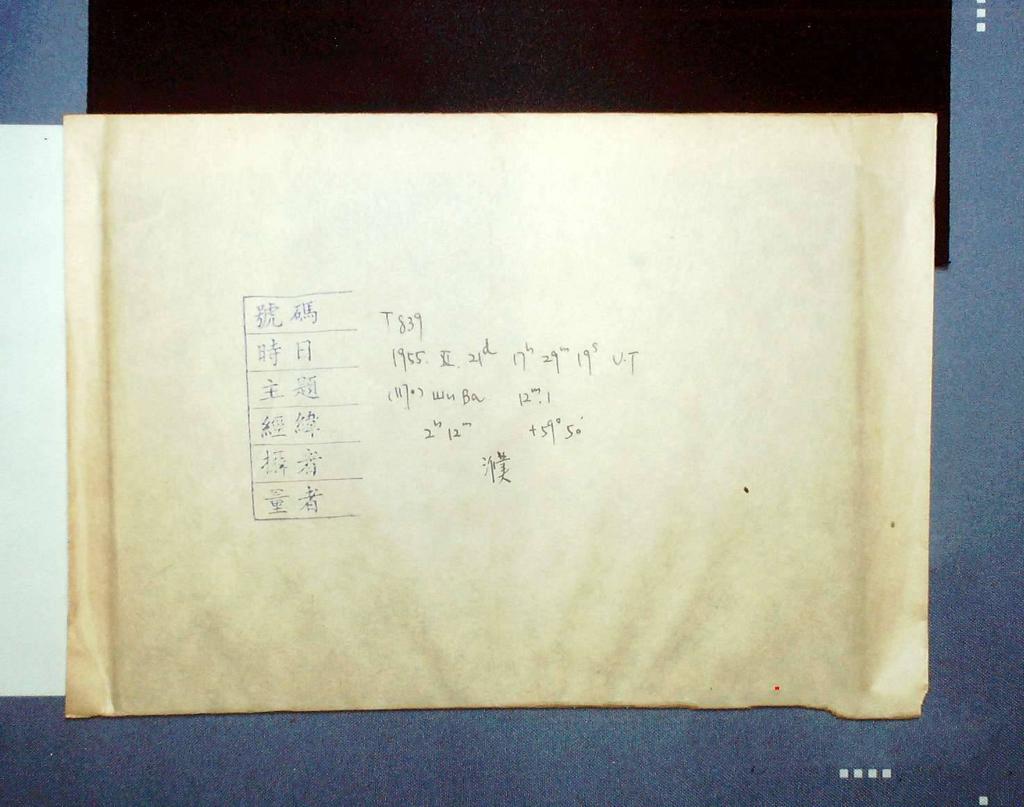 號碼 T 839
時日 1955. XI. 21ᵈ 17ʰ 29ᵐ 19ˢ U.T
主題 Wu Ba 12ᵐ.1
經緯 2ʰ 12ᵐ +59° 50′
攝者 濮
量者